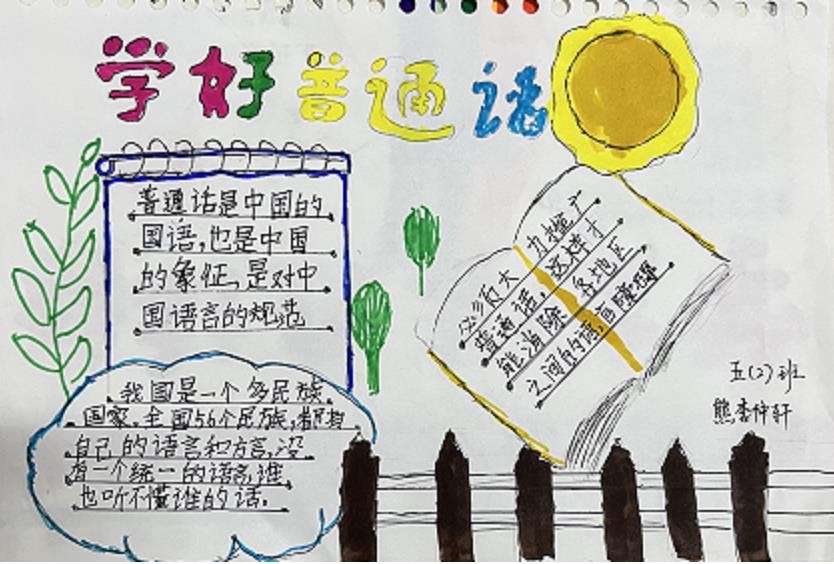 学好普通话
普通话是中国的
国语,也是中国
的象征,是对中
国语言的规范
必须大力推广
普通话,这样才
能消除各地区
之间的语言障碍
我国是一个多民族
国家.全国56个民族,都有
自己的语言和方言,没
有一个统一的语言,谁
也听不懂谁的话.
五(2)班
熊李仲轩